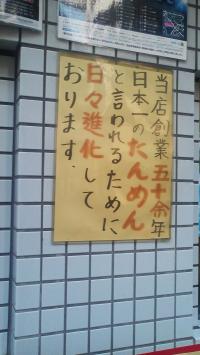 当店創業五十余年
日本一のたんめん
と言われるために
日々進化して
おります。